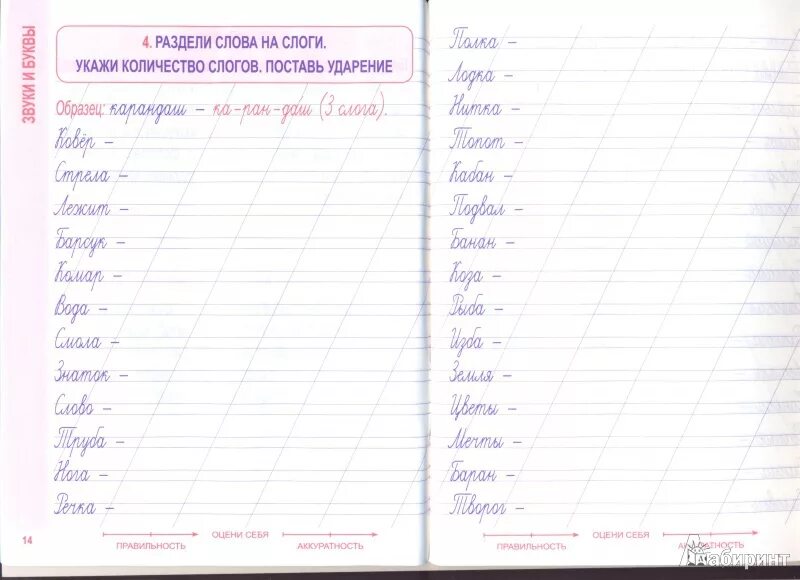 ЗВУКИ И БУКВЫ
4. РАЗДЕЛИ СЛОВА НА СЛОГИ.
УКАЖИ КОЛИЧЕСТВО СЛОГОВ. ПОСТАВЬ УДАРЕНИЕ
Образец: карандаш – ка-ран-даш (3 слога).
Ковёр –
Стрела –
Лежит –
Барсук –
Комар –
Вода –
Смола –
Знаток –
Слово –
Труба –
Нога –
Речка –
14
ПРАВИЛЬНОСТЬ ОЦЕНИ СЕБЯ АККУРАТНОСТЬ
Полка –
Лодка –
Нитка –
Топот –
Кабан –
Подвал –
Банан –
Коза –
Рыба –
Изба –
Земля –
Цветы –
Мечты –
Баран –
Творог –
ПРАВИЛЬНОСТЬ ОЦЕНИ СЕБЯ АККУРАТНОСТЬ
Лабиринт